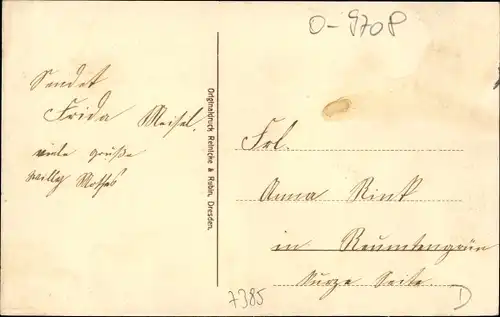 O-9708
Sendet
Frida Meisel.
viele grüße
willy Mothes
Originaldruck, Reinicke & Rubin, Dresden.
Frl.
Anna Rink
in Reumtengrün
Kurze Seite.
7385
D